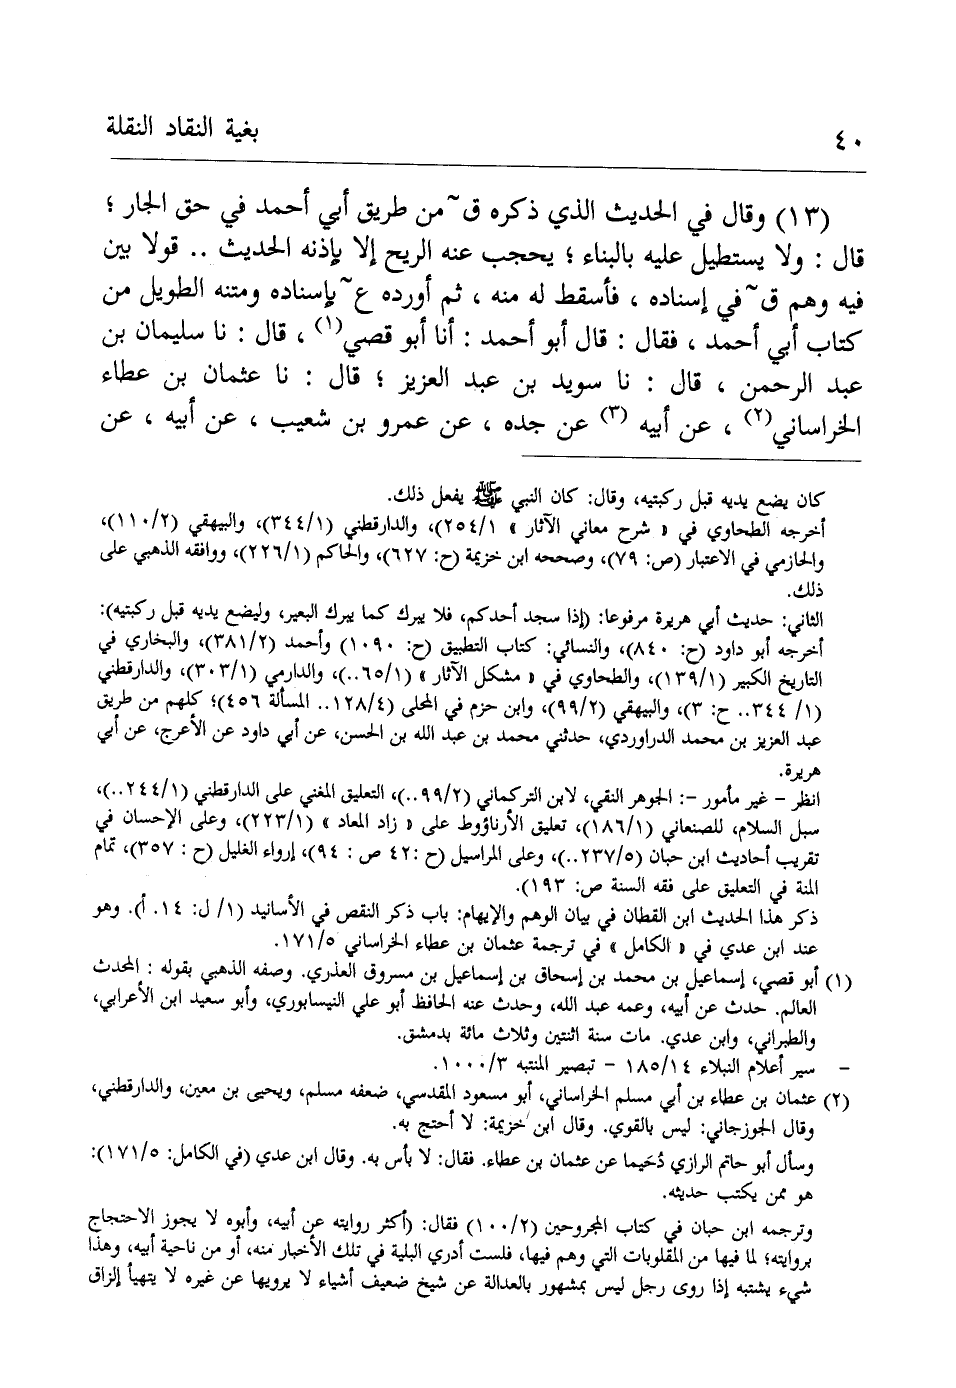 ٤٠ بغية النقاد النقلة
(١٣) وقال في الحديث الذي ذكره ق~ من طريق أبي أحمد في حق الجار ؛
قال : ولا يستطيل عليه بالبناء ؛ يحجب عنه الريح إلا بإذنه الحديث .. قولا بين
فيه وهم ق~ في إسناده ، فأسقط له منه ، ثم أورده ع~ بإسناده ومتنه الطويل من
كتاب أبي أحمد ، فقال : قال أبو أحمد : أنا أبو قصي(١) ، قال : نا سليمان بن
عبد الرحمن ، قال : نا سويد بن عبد العزيز ؛ قال : نا عثمان بن عطاء
الخراساني(٢) ، عن أبيه (٣) عن جده ، عن عمرو بن شعيب ، عن أبيه ، عن
كان يضع يديه قبل ركبتيه، وقال: كان النبي ﷺ يفعل ذلك.
أخرجه الطحاوي في « شرح معاني الآثار » ٢٥٤/١)، والدارقطني (٣٤٤/١)، والبيهقي (١١٠/٢)،
والحازمي في الاعتبار (ص: ٧٩)، وصححه ابن خزيمة (ح: ٦٢٧)، والحاكم (٢٢٦/١)، ووافقه الذهبي على
ذلك.
الثاني: حديث أبي هريرة مرفوعا: (إذا سجد أحدكم، فلا يبرك كما يبرك البعير، وليضع يديه قبل ركبتيه):
أخرجه أبو داود (ح: ٨٤٠)، والنسائي: كتاب التطبيق (ح: ١٠٩٠) وأحمد (٣٨١/٢)، والبخاري في
التاريخ الكبير (١٣٩/١)، والطحاوي في « مشكل الآثار » (٦٥/١..)، والدارمي (٣٠٣/١)، والدارقطني
(١/ ٣٤٤.. ح: ٣)، والبيهقي (٩٩/٢)، وابن حزم في المحلى (١٢٨/٤.. المسألة ٤٥٦)؛ كلهم من طريق
عبد العزيز بن محمد الدراوردي، حدثني محمد بن عبد الله بن الحسن، عن أبي داود عن الأعرج، عن أبي
هريرة.
انظر – غير مأمور –: الجوهر النقي، لابن التركماني (٩٩/٢..)، التعليق المغني على الدارقطني (٢٤٤/١..)،
سبل السلام، للصنعاني (١٨٦/١)، تعليق الأرناؤوط على « زاد المعاد » (٢٢٣/١)، وعلى الإحسان في
تقريب أحاديث ابن حبان (٢٣٧/٥..)، وعلى المراسيل (ح :٤٢ ص : ٩٤)، إرواء الغليل (ح : ٣٥٧)، تمام
المنة في التعليق على فقه السنة ص: ١٩٣).
ذكر هذا الحديث ابن القطان في بيان الوهم والإيهام: باب ذكر النقص في الأسانيد (١/ ل: ١٤. أ). وهو
عند ابن عدي في « الكامل » في ترجمة عثمان بن عطاء الخراساني ١٧١/٥.
(١) أبو قصي، إسماعيل بن محمد بن إسحاق بن إسماعيل بن مسروق العذري. وصفه الذهبي بقوله : المحدث
العالم. حدث عن أبيه، وعمه عبد الله، وحدث عنه الحافظ أبو علي النيسابوري، وأبو سعيد ابن الأعرابي،
والطبراني، وابن عدي. مات سنة اثنتين وثلاث مائة بدمشق.
– سير أعلام النبلاء ١٨٥/١٤ – تبصير المنتبه ١٠٠٠/٣.
(٢) عثمان بن عطاء بن أبي مسلم الخراساني، أبو مسعود المقدسي، ضعفه مسلم، ويحيى بن معين، والدارقطني،
وقال الجوزجاني: ليس بالقوي. وقال ابن خزيمة: لا أحتج به.
وسأل أبو حاتم الرازي دُحَيما عن عثمان بن عطاء. فقال: لا بأس به. وقال ابن عدي (في الكامل: ١٧١/٥):
هو ممن يكتب حديثه.
وترجمه ابن حبان في كتاب المجروحين (١٠٠/٢) فقال: (أكثر روايته عن أبيه، وأبوه لا يجوز الاحتجاج
بروايته؛ لما فيها من المقلوبات التي وهم فيها، فلست أدري البلية في تلك الأخبار منه، أو من ناحية أبيه، وهذا
شيء يشتبه إذا روى رجل ليس بمشهور بالعدالة عن شيخ ضعيف أشياء لا يرويها عن غيره لا يتهيأ إلزاق